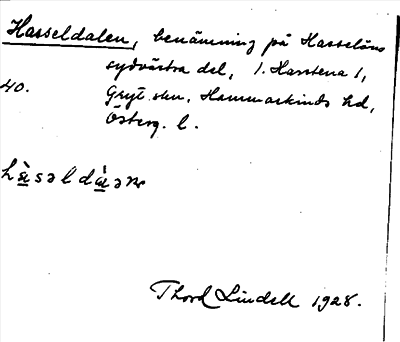 Hasseldalen, benämning på Hasselöns
sydvästra del, 1. Harstena 1,
40. Gryt skn. Hammarkinds hd,
Österg. l.
Thord Lindell 1928.